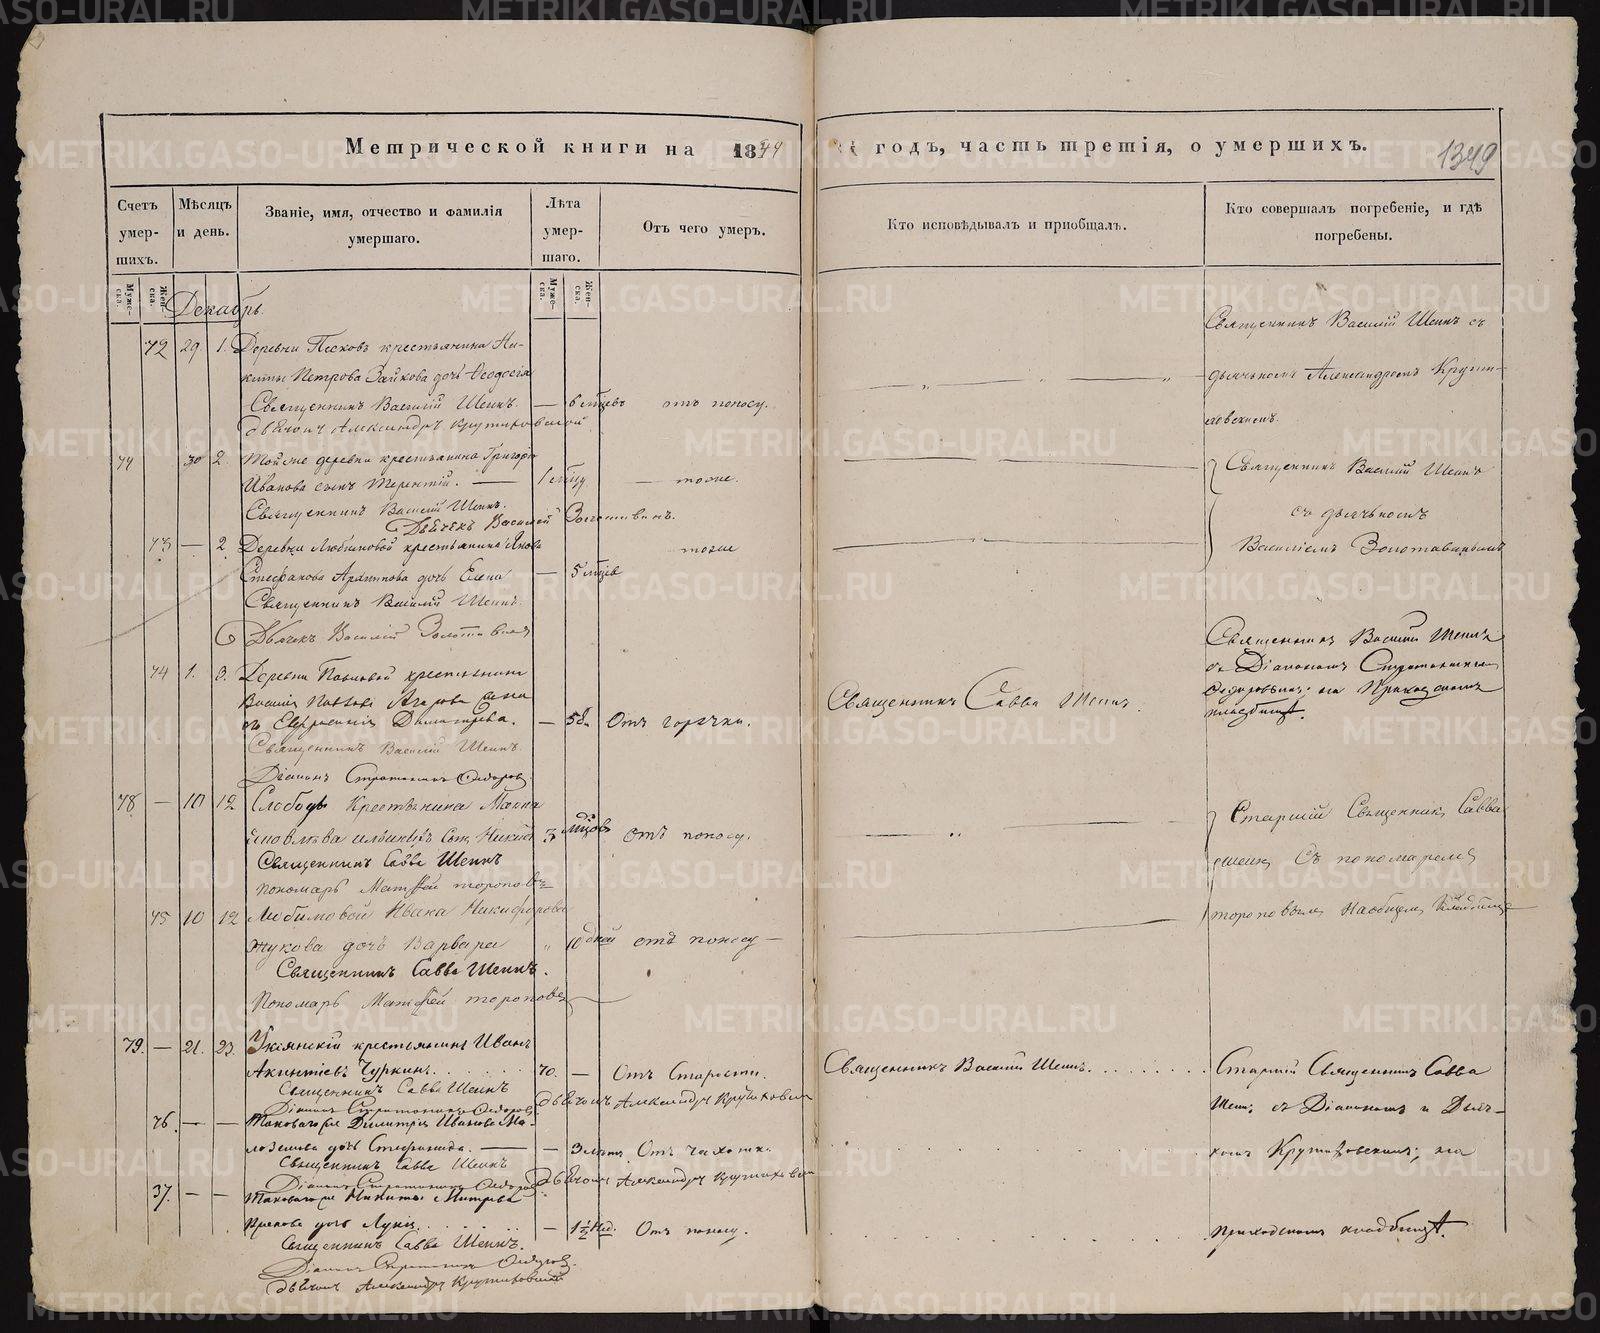 Метрической книги на 1844 годъ, часть третія, о умершихъ.
1349
Счетъ умер-шихъ.
Мѣсяцъ и день.
Званіе, имя, отчество и фамилія умершаго.
Лѣта умер-шаго.
Отъ чего умеръ.
Кто исповѣдывалъ и пріобщалъ.
Кто совершалъ погребеніе, и гдѣ погребены.
Муже-ска.
Жен-ска.
Муже-ска.
Жен-ска.
Декабрь.
72 29 1. Деревни Песковъ крестьянина Ни-
киты Петрова Зайкова дочь Ѳеодосія
6 мцовъ отъ поносу.
Священникъ Василій Шеинъ.
Дьячокъ Александръ Крутиховской
Священникъ Василій Шеинъ съ
дьячькомъ Александромъ Крути-
ховскимъ.
77 30 2. Тойже деревни крестьянина Григорія
Иванова сынъ Терентій. 1 мцу. тоже.
Священникъ Василій Шеинъ.
Дьячекъ Василій Золотавинъ.
Священникъ Василій Шеинъ
съ дьячькомъ
Василіемъ Золотавинымъ
73 — 2. Деревни Любимовой крестьянина Якова
тоже
Стефанова Архипова дочь Елена — 5 мцовъ
Священникъ Василій Шеинъ.
Дьячекъ Василій Золотавинъ
74 1. 3. Деревни крестьянина
Василія Павлова жена
Евфросинія Димитріева. — 58. Отъ горячки.
Священникъ Василій Шеинъ.
Діаконъ Стратоникъ Ѳедоровъ.
Священникъ Савва Шеинъ.
Священникъ Василій Шеинъ
съ Діакономъ Стратоникомъ
Ѳедоровымъ; на Приходскомъ
кладбищѣ.
78 — 10 12 Слободы Крестьянина
сынъ 3 мцовъ отъ поносу.
Священникъ Савва Шеинъ
пономарь Матѳей тороповъ
Старшій Священникъ Савва
шеинъ Съ пономаремъ
тороповымъ Наобщемъ Кладбище
75 10 12 Любимовой Ивана Никифорова
жукова дочь Варвара „ 10 дней отъ поносу —
Священникъ Савва Шеинъ.
Пономарь Матѳей тороповъ
79. — 21. 23. Укіянскій крестьянинъ Иванъ
Акинтіевъ Чуркинъ. 70. — Отъ Старости.
Священникъ Савва Шеинъ
Діаконъ Стратоникъ Ѳедоровъ
дьячокъ Александръ Крутиховской
Священникъ Василій Шеинъ.
Старшій Священникъ Савва
Шеинъ, съ Діакономъ и Дьяч-
комъ Крутиховскимъ; на
приходскомъ кладбищѣ.
76. — — Таковагоже Димитрія Иванова Ма-
лоземова дочь Стефанида. — 3 лѣтъ Отъ чахотки.
Священникъ Савва Шеинъ
Діаконъ Стратоникъ Ѳедоровъ
дьячокъ Александръ Крутиховской
37. — — Таковагоже Никиты Митрева
дочь — 1½ Нед. Отъ поносу.
Священникъ Савва Шеинъ.
Діаконъ Стратоникъ Ѳедоровъ.
дьячокъ Александръ Крутиховской
METRIKI.GASO-URAL.RU